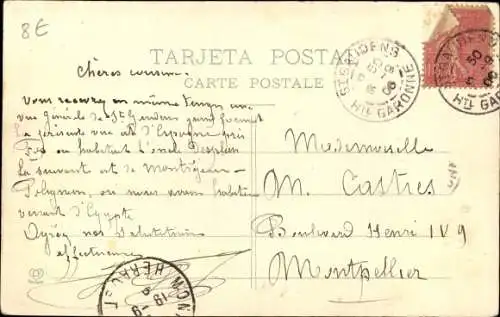 8€
TARJETA POSTAL
CARTE POSTALE
chères cousine
Vous recevez en même temps une
vue générale de St Gaudens grand format
La présente vue est d'Espagne près
Fos ou habitait l'oncle
La suivant est de Montréjeau
Polignan, ou nous avons habité
venant d'Egypte
Agréez nos Salutations
affectueuses
Mademoiselle
M. Castres
Boulevard Henri IV 9
Montpellier
ST GAUDENS
HTE GARONNE
ST GAUDENS
HTE GARONNE
HERAULT